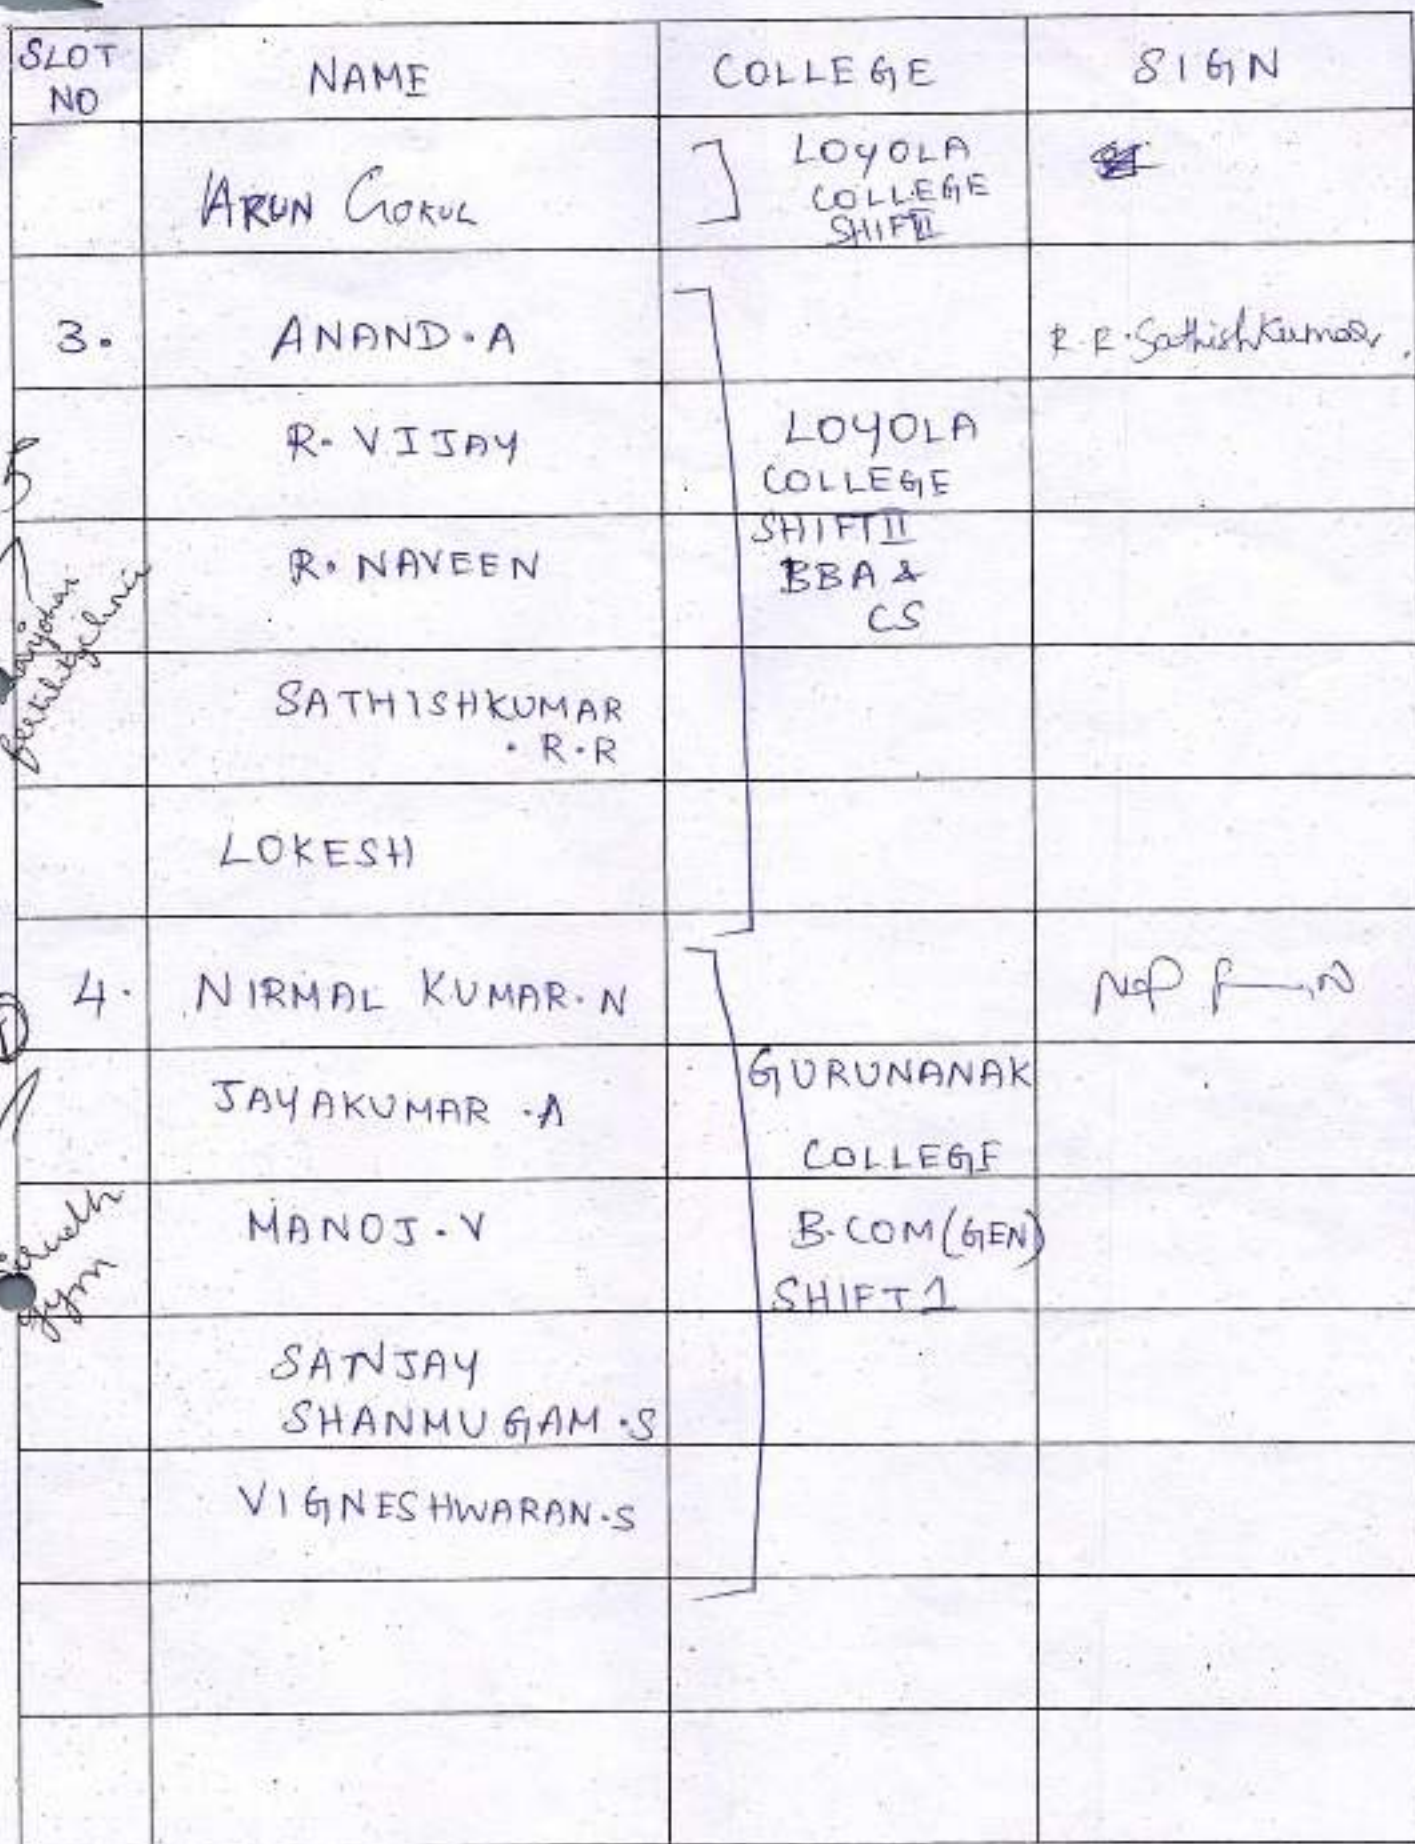 SLOT NO
NAME
COLLEGE
SIGN
ARUN GOKUL
LOYOLA
COLLEGE
SHIFT II
3.
ANAND.A
R.R.SathishKumar.
R. VIJAY
LOYOLA
COLLEGE
R. NAVEEN
SHIFT II
BBA &
CS
SATHISHKUMAR
. R.R
LOKESH
4.
NIRMAL KUMAR.N
JAYAKUMAR .A
GURUNANAK
COLLEGE
MANOJ.V
B.COM(GEN)
SHIFT 1
SANJAY
SHANMUGAM.S
VIGNESHWARAN.S
5
gym